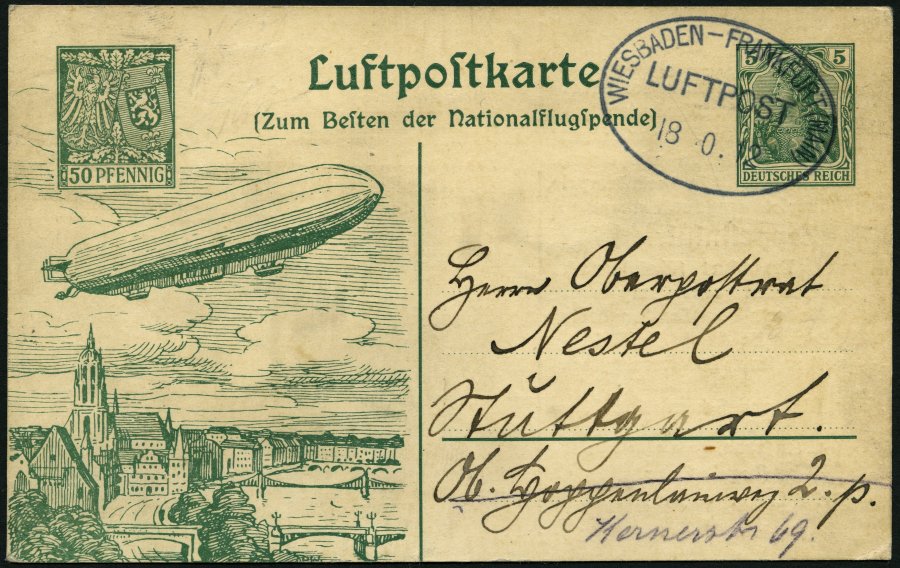 Luftpostkarte
(Zum Besten der Nationalflugspende)
50 PFENNIG
WIESBADEN-FRANKFURT (MAIN)
LUFTPOST
18 0. 12
5 5
DEUTSCHES REICH
Herrn Oberpostrat
Nestel
Stuttgart.
Ob. Hoppenlauweg 2. p.
Kernerstr 69.